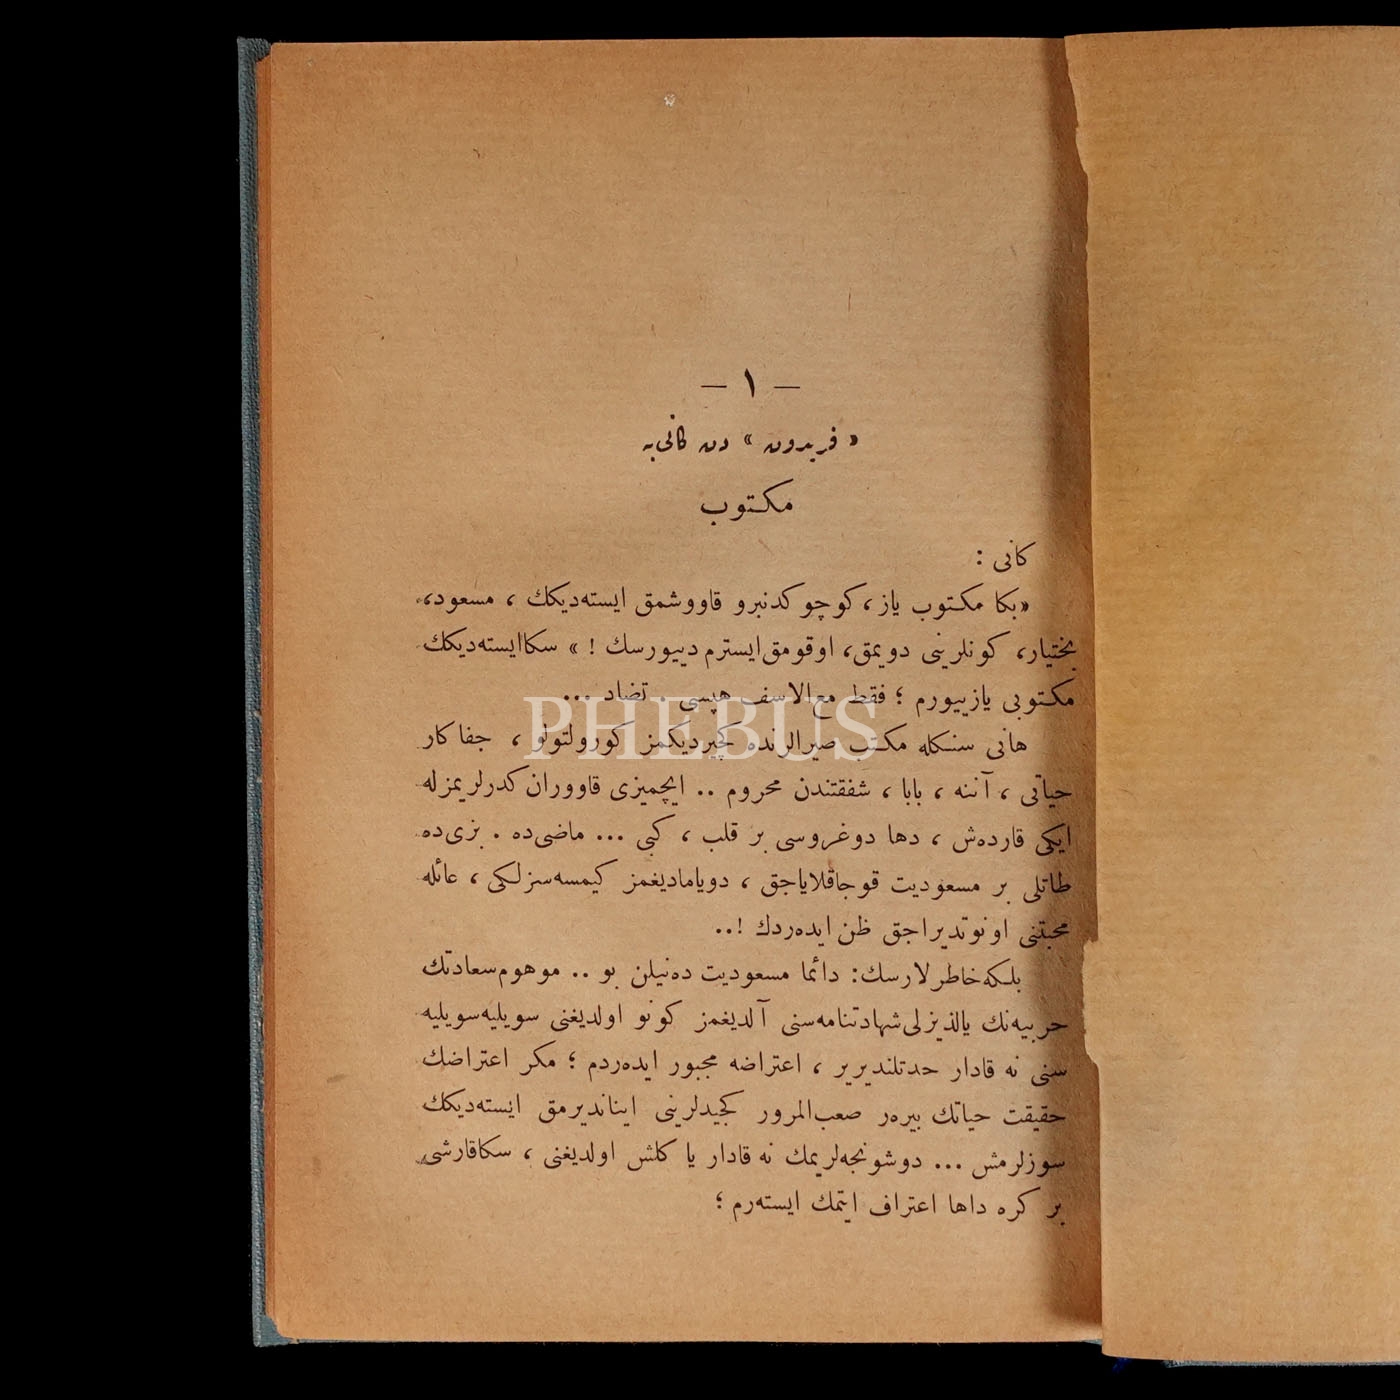 — ١ —
« فريدون » دن كانى‌يه
مكتوب
كانى :
«بكا مكتوب ياز ، كوچوكدنبرو قاووشمق ايسته‌ديكك ، مسعود،
بختيار، كونلرينى دويمق، اوقومق ايسترم دييورسك ! » سكا ايسته‌ديكك
مكتوبى يازييورم ؛ فقط مع‌الاسف هپسى . تضاد ...
هانى سنكله مكتب صيرالرنده كچيرديكمز كورولتولو ، جفاكار
حياتى ، آننه ، بابا ، شفقتندن محروم .. ايچميزى قاووران كدرلريمزله
ايكى قارده‌ش ، دها دوغروسى بر قلب ، كبى ... ماضى‌ده . بزى‌ده
طاتلى بر مسعوديت قوجاقلاياجق ، دوياماديغمز كيمسه‌سزلكى ، عائله
محبتنى اونوتديراجق ظن ايده‌ردك !..
بلكه خاطرلارسك: دائما مسعوديت ده‌نيلن بو .. موهوم سعادتك
حربيه‌نك يالديزلى شهادتنامه‌سنى آلديغمز كونو اولديغنى سويليه سويليه
سنى نه قادار حدتلنديرير ، اعتراضه مجبور ايده‌ردم ؛ مكر اعتراضك
حقيقت حياتك بيره‌ر صعب‌المرور كچيدلرينى ايناندیرمق ايسته‌ديكك
سوزلرمش ... دوشونجه‌لريمك نه قادار يا كلش اولديغنى ، سكا قارشى
بر كره داها اعتراف ايتمك ايسته‌رم ؛
PHEBUS